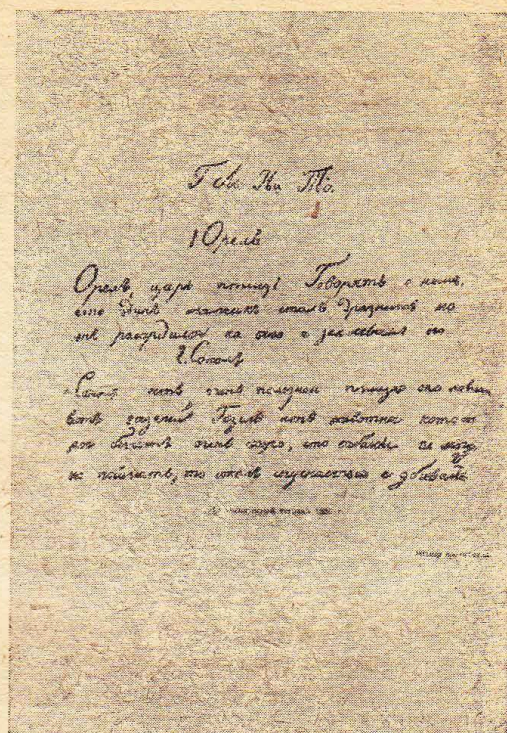 1 Орелъ
Орелъ царь птицъ Говорятъ о немъ,
что одинъ мальчикъ сталъ дразнить но
онъ разсердился на него и заклевалъ его
2. Соколъ
Соколъ есть очень полезная птица она лови
тъ газелей Газель есть животное котор
рое бегаетъ очень скоро, что собаки не могу
не поймать, то соколъ спускается и убиваетъ